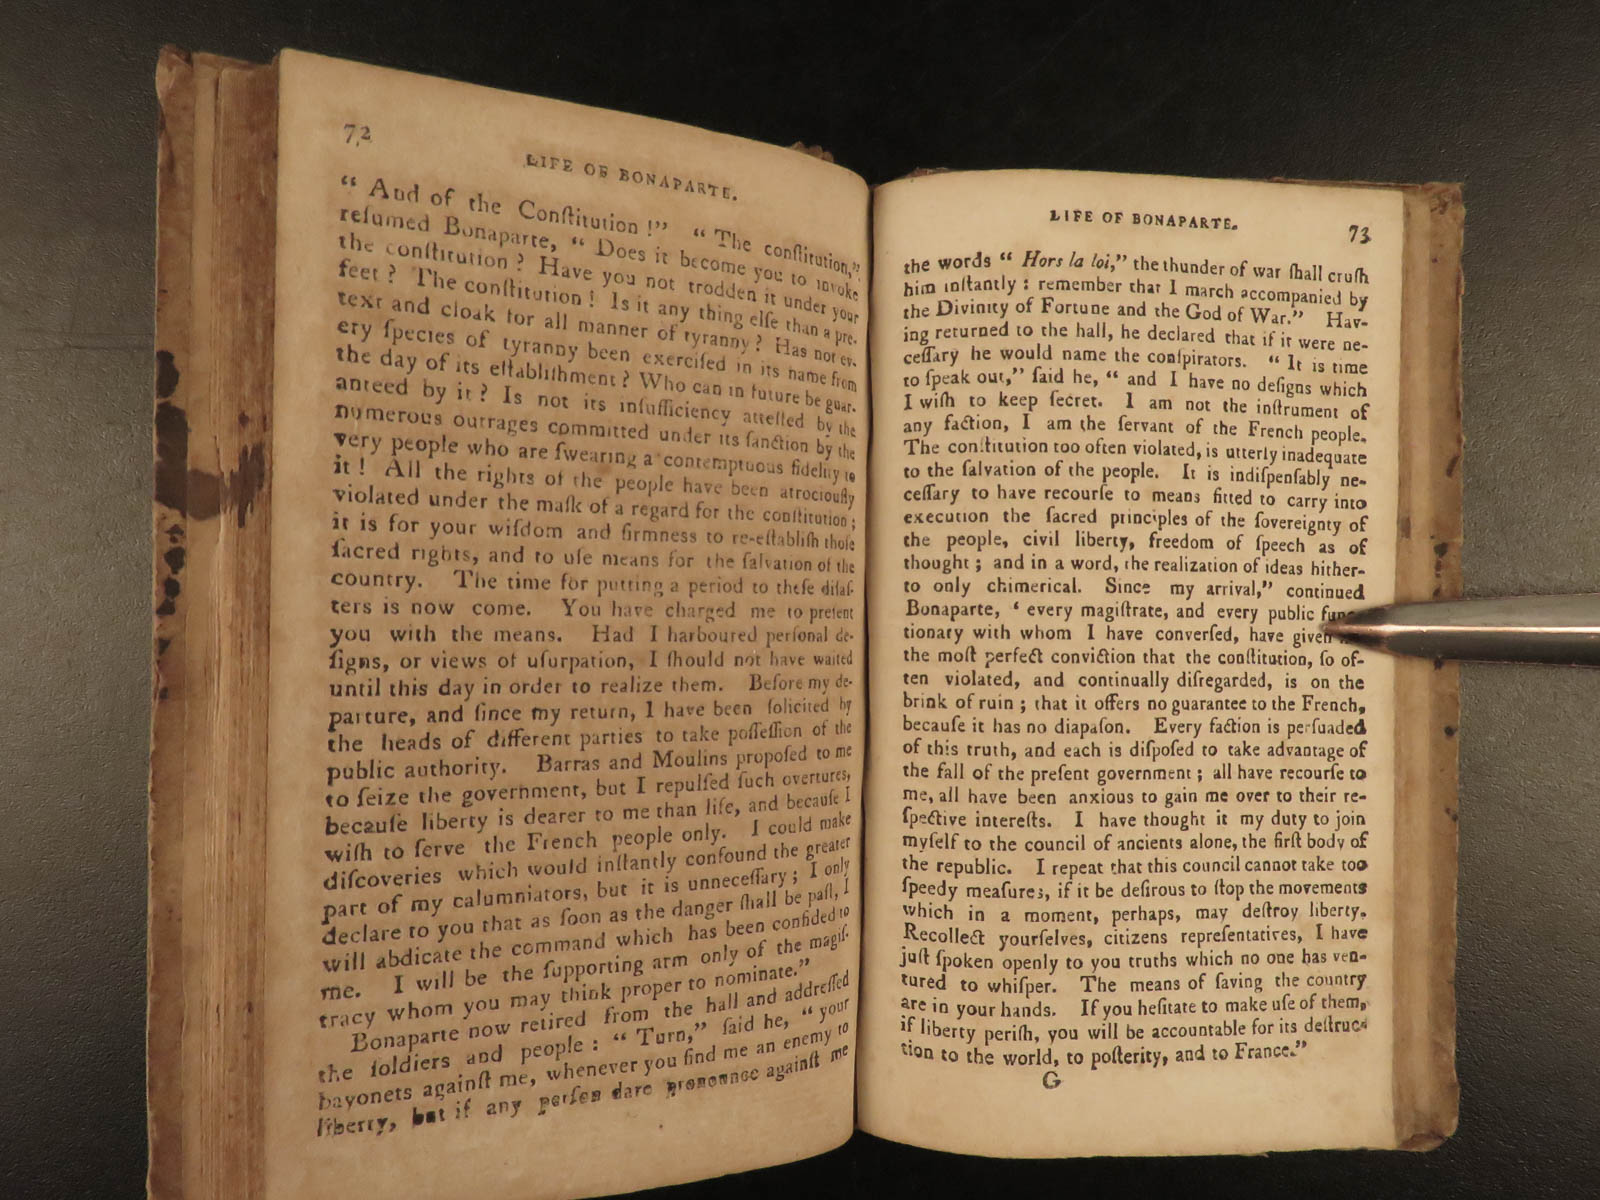 72
LIFE OF BONAPARTE.
“ And of the Conſtitution !” “ The conſtitution,”
reſumed Bonaparte, “ Does it become you to invoke
the conſtitution ? Have you not trodden it under your
feet ? The conſtitution ! Is it any thing elſe than a pre-
text and cloak for all manner of tyranny ? Has not ev-
ery ſpecies of tyranny been exerciſed in its name from
the day of its eſtabliſhment ? Who can in future be guar-
anteed by it ? Is not its inſufficiency atteſted by the
numerous outrages committed under its ſanction by the
very people who are ſwearing a contemptuous fidelity to
it ! All the rights of the people have been atrociouſly
violated under the maſk of a regard for the conſtitution ;
it is for your wiſdom and firmneſs to re-eſtabliſh thoſe
ſacred rights, and to uſe means for the ſalvation of the
country. The time for putting a period to theſe diſaſ-
ters is now come. You have charged me to preſent
you with the means. Had I harboured perſonal de-
ſigns, or views of uſurpation, I ſhould not have waited
until this day in order to realize them. Before my de-
parture, and ſince my return, I have been ſolicited by
the heads of different parties to take poſſeſſion of the
public authority. Barras and Moulins propoſed to me
to ſeize the government, but I repulſed ſuch overtures,
becauſe liberty is dearer to me than life, and becauſe I
wiſh to ſerve the French people only. I could make
diſcoveries which would inſtantly confound the greater
part of my calumniators, but it is unneceſſary ; I only
declare to you that as ſoon as the danger ſhall be paſt, I
will abdicate the command which has been confided to
me. I will be the ſupporting arm only of the magiſ-
tracy whom you may think proper to nominate.”
Bonaparte now retired from the hall and addreſſed
the ſoldiers and people : “ Turn,” ſaid he, “ your
bayonets againſt me, whenever you find me an enemy to
liberty, but if any perſon dare pronounce againſt me
LIFE OF BONAPARTE.
73
the words “ Hors la loi,” the thunder of war ſhall cruſh
him inſtantly : remember that I march accompanied by
the Divinity of Fortune and the God of War.” Hav-
ing returned to the hall, he declared that if it were ne-
ceſſary he would name the conſpirators. “ It is time
to ſpeak out,” ſaid he, “ and I have no deſigns which
I wiſh to keep ſecret. I am not the inſtrument of
any faction, I am the ſervant of the French people.
The conſtitution too often violated, is utterly inadequate
to the ſalvation of the people. It is indiſpenſably ne-
ceſſary to have recourſe to means fitted to carry into
execution the ſacred principles of the ſovereignty of
the people, civil liberty, freedom of ſpeech as of
thought ; and in a word, the realization of ideas hither-
to only chimerical. Since my arrival,” continued
Bonaparte, ‘ every magiſtrate, and every public func-
tionary with whom I have converſed, have given
the moſt perfect conviction that the conſtitution, ſo of-
ten violated, and continually diſregarded, is on the
brink of ruin ; that it offers no guarantee to the French,
becauſe it has no diapaſon. Every faction is perſuaded
of this truth, and each is diſpoſed to take advantage of
the fall of the preſent government ; all have recourſe to
me, all have been anxious to gain me over to their re-
ſpective intereſts. I have thought it my duty to join
myſelf to the council of ancients alone, the firſt body of
the republic. I repeat that this council cannot take too
ſpeedy meaſures, if it be deſirous to ſtop the movements
which in a moment, perhaps, may deſtroy liberty.
Recollect yourſelves, citizens repreſentatives, I have
juſt ſpoken openly to you truths which no one has ven-
tured to whiſper. The means of ſaving the country
are in your hands. If you heſitate to make uſe of them,
if liberty periſh, you will be accountable for its deſtruc-
tion to the world, to poſterity, and to France.”
G